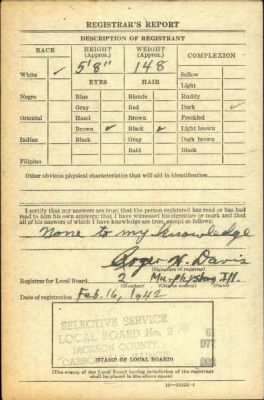 REGISTRAR'S REPORT
DESCRIPTION OF REGISTRANT
RACE HEIGHT (Approx.) WEIGHT (Approx.) COMPLEXION
5'8" 148
White ✓ Sallow
EYES HAIR Light
Negro Blue Blonde Ruddy
Gray Red Dark ✓
Oriental Hazel Brown Freckled
Brown ✓ Black ✓ Light brown
Indian Black Gray Dark brown
Bald Black
Filipino
Other obvious physical characteristics that will aid in identification
I certify that my answers are true; that the person registered has read or has had
read to him his own answers; that I have witnessed his signature or mark and that
all of his answers of which I have knowledge are true, except as follows:
None to my knowledge
Roger W. Davis
(Signature of registrar)
Registrar for Local Board 2 Murphysboro Ill.
Date of registration Feb. 16, 1942
SELECTIVE SERVICE
LOCAL BOARD No. 2
JACKSON COUNTY
077
(STAMP OF LOCAL BOARD)
(The stamp of the Local Board having jurisdiction of the registrant
shall be placed in the above space.)